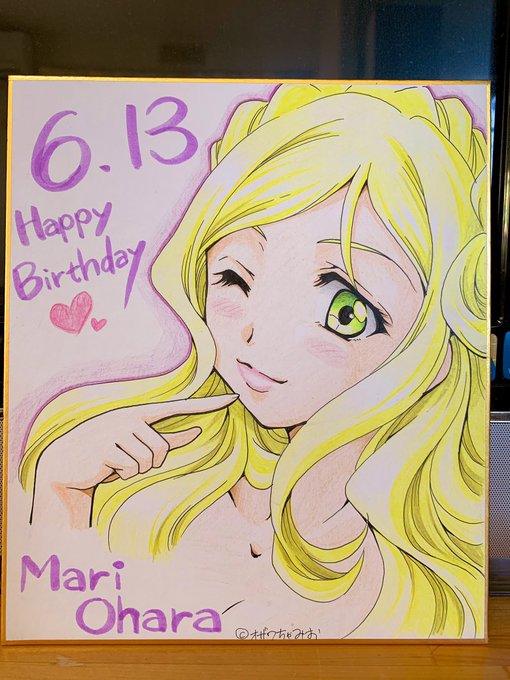 6.13
Happy
Birthday
Mari
Ohara
©オザワ